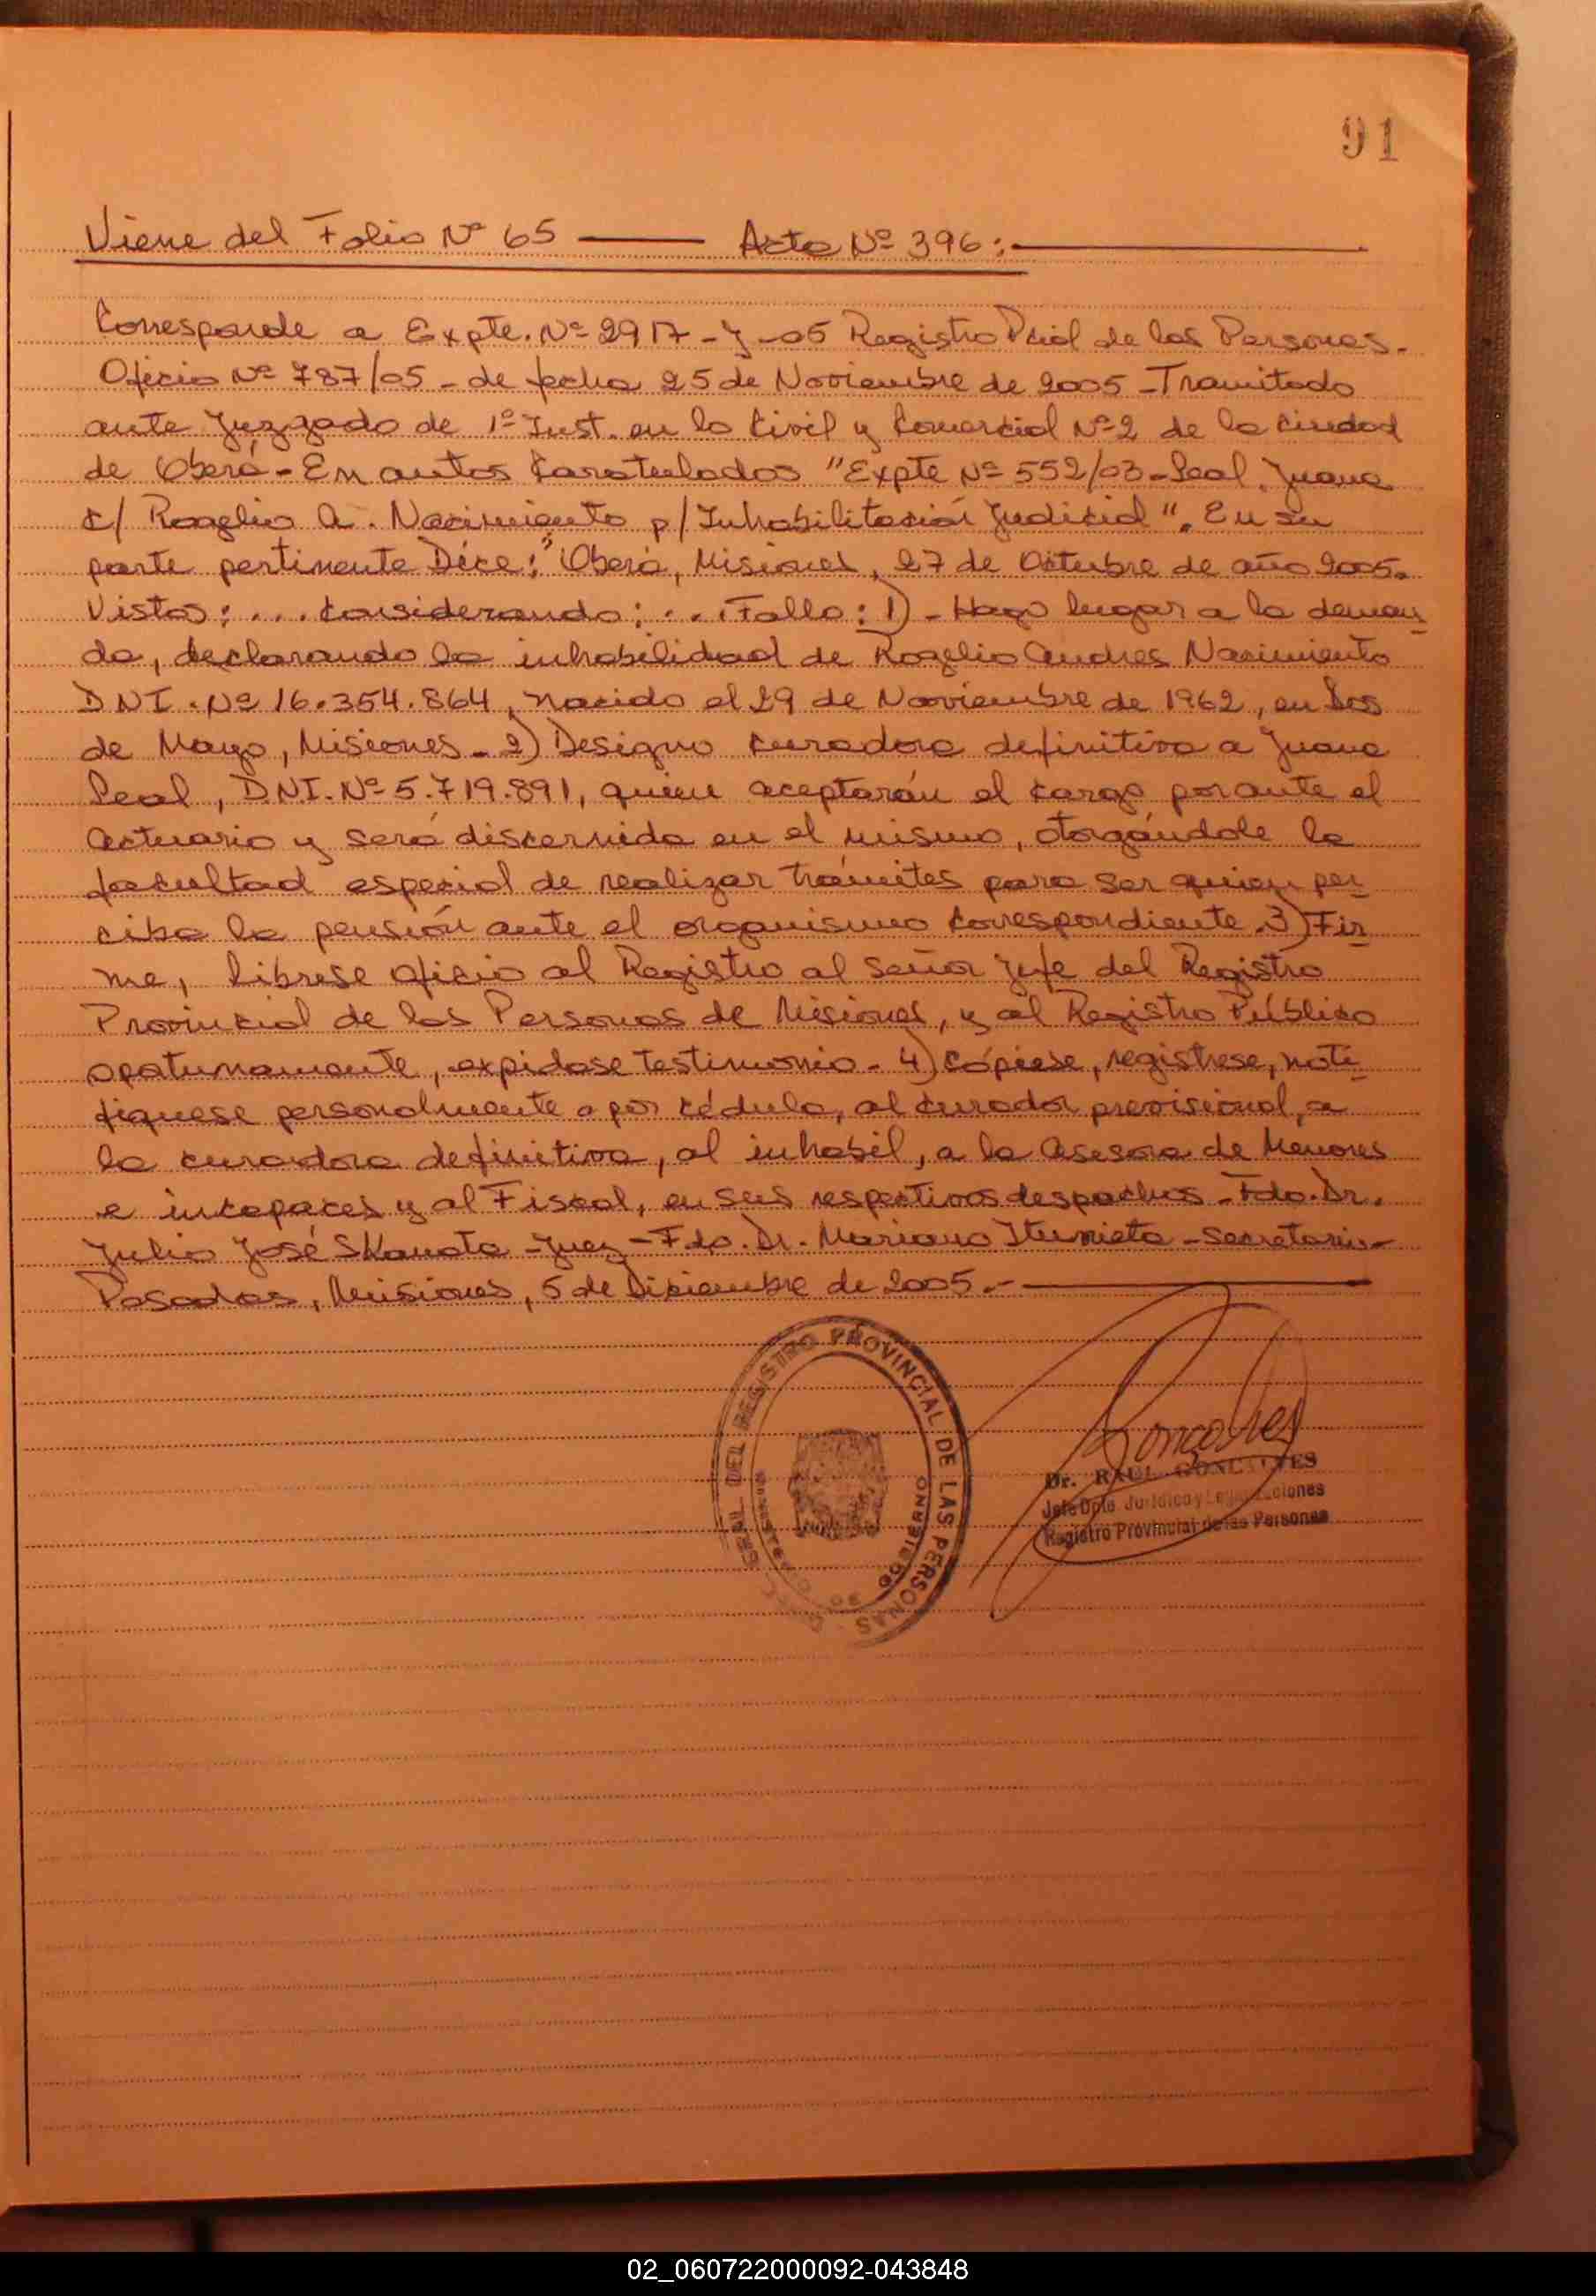 91
Viene del Folio Nº 65 ——— Acta Nº 396: ———
Corresponde a Expte. Nº 2917-J-05 Registro Pcial de las Personas.
Oficio Nº 787/05 - de fecha 25 de Noviembre de 2005 - Tramitado
ante Juzgado de 1º Inst. en lo Civil y Comercial Nº 2 de la ciudad
de Oberá - En autos Caratulados "Expte Nº 552/03 - Leal, Juana
c/ Rogelio A. Nacimiento p/ Inhabilitación Judicial". En su
parte pertinente Dice: "Oberá, Misiones, 27 de Octubre de año 2005.
Vistos: ... Considerando: ... Fallo: 1) - Hago lugar a la deman-
da, declarando la inhabilidad de Rogelio Andres Nacimiento
DNI. Nº 16.354.864, nacido el 29 de Noviembre de 1962, en Dos
de Mayo, Misiones - 2) Designo curadora definitiva a Juana
Leal, D.N.I. Nº 5.719.891, quien aceptarán el cargo por ante el
Actuario y será discernida en el mismo, otorgándole la
facultad especial de realizar trámites para ser quien per-
ciba la pensión ante el organismo correspondiente. 3) Fir-
me, librese oficio al Registro al Señor Jefe del Registro
Provincial de las Personas de Misiones, y al Registro Público
opotunamente, expidase testimonio - 4) Cópiese, registrese, noti-
fiquese personalmente o por cédula, al curador provisional, a
la curadora definitiva, al inhabil, a la Asesora de Menores
e incapaces y al Fiscal, en sus respectivos despachos - Fdo. Dr.
Julio José Skanata - Juez - Fdo. Dr. Mariano - Secretario -
Posadas, Misiones, 5 de Diciembre de 2005.- ———
GRAL DEL REGISTRO PROVINCIAL DE LAS PERSONAS
MINISTERIO DE GOBIERNO
Dr. RAUL GONCALVES
Jefe Dpto. Jurídico y Legalizaciones
Registro Provincial de las Personas
02_060722000092-043848